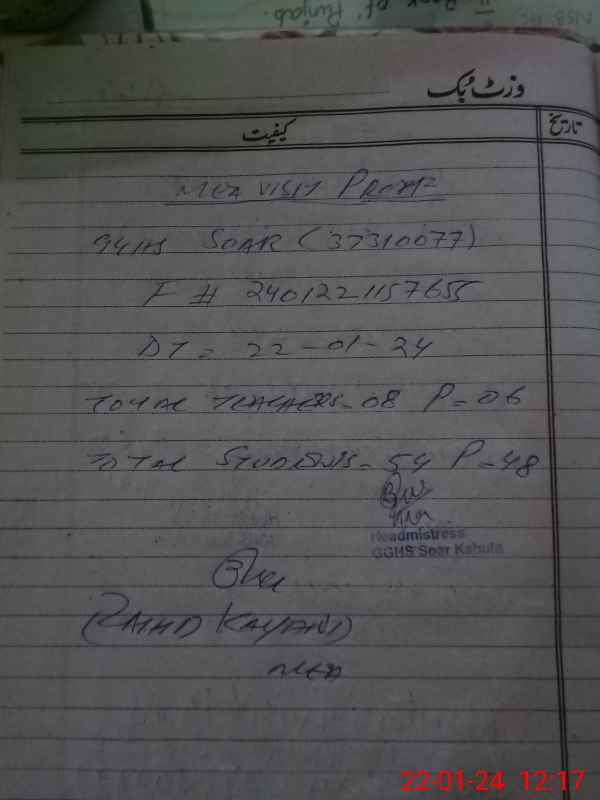 Bank of Punjab.
وزٹ بُک
تاریخ
کیفیت
MEA VISIT PROOF
GGHS SOAR (37310077)
F # 2401221157655
DT = 22-01-24
TOTAL TEACHERS - 08 P = 06
TOTAL STUDENTS = 54 P - 48
Headmistress
GGHS Soar Kahuta
KAYANI)
MEA
22-01-24 12:17